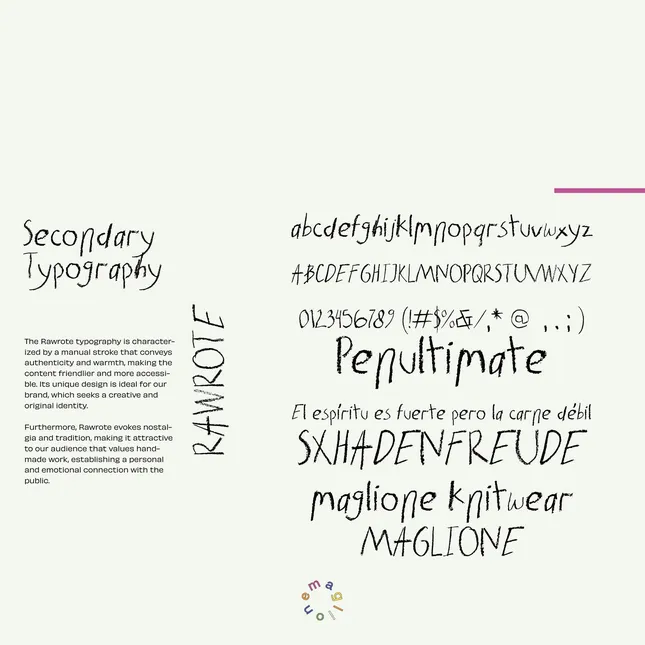 Secondary
Typography
The Rawrote typography is character-
ized by a manual stroke that conveys
authenticity and warmth, making the
content friendlier and more accessi-
ble. Its unique design is ideal for our
brand, which seeks a creative and
original identity.
Furthermore, Rawrote evokes nostal-
gia and tradition, making it attractive
to our audience that values hand-
made work, establishing a personal
and emotional connection with the
public.
RAWROTE
abcdefghijklmnopqrstuvwxyz
ABCDEFGHIJKLMNOPQRSTUVWXYZ
0123456789 (!#$%&/,* @ ,.;)
Penultimate
El espíritu es fuerte pero la carne débil
SXHADENFREUDE
maglione knitwear
MAGLIONE
maglione